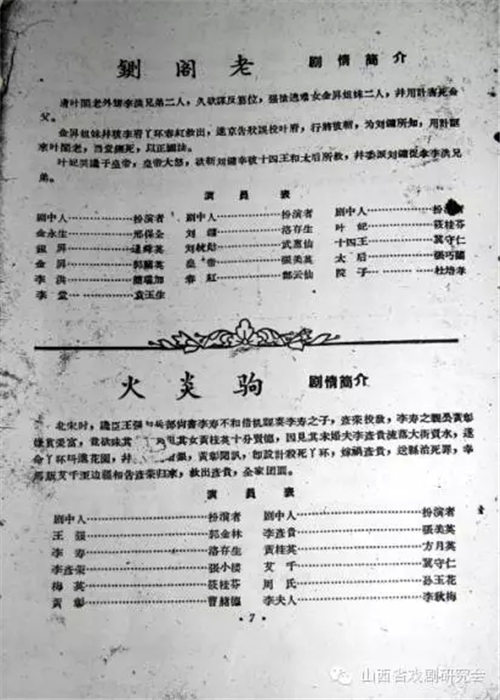 鍘阁老 剧情简介
清叶閣老外甥李洪兄弟二人,久欲謀反篡位,强法选难女金屏姐妹二人,幷用計害死金
父。
金屏姐妹幷被李府丫环春紅救出,逃京告狀誤投叶府,行將被斬,为刘鏞所知,用計誆
来叶閣老,当堂鍘死,以正國法。
叶妃哭諫于皇帝,皇帝大怒,欲斩刘鏞幸被十四王和太后所救,幷委派刘鏞促拿李洪兄
弟。
演員表
剧中人……扮演者 剧中人……扮演者 剧中人……扮演者
金永生……邢保全 刘鏞……洛存生 叶妃……筱桂芬
銀屏……舜英 刘統勛……武惠仙 十四王……冀守仁
金屏……郭蘭英 皇帝……張美英 太后……張巧蘭
李洪……瑞加 春紅……郜云仙 院子……杜培孝
李堂……袁玉生
火炎驹 剧情簡介
北宋时,讒臣王强与兵部尙書李寿不和借机誣奏李寿之子,彥荣投敌,李寿之親家黃彰
嫌貧爱富,竟欲昧其 其女黃桂英十分賢德,因見其未婚夫李彥貴流落大街賣水,遂
命丫环約進花園,幷 銀,黃彰聞訊,卽設計殺死丫环,嫁禍彥貴,送縣治死罪,幸
馬販艾千至边疆相告彥荣归来,救出彥貴,全家团圓。
演員表
剧中人……扮演者 剧中人……扮演者
王强……郭金林 李彥貴……張美英
李寿……洛存生 黃桂英……方月英
李彥荣……張小楼 艾千……冀守仁
梅英……筱桂芬 周氏……孙玉花
黃彰……曹緒德 李夫人……李秋梅
·7·
山西省戏剧研究会